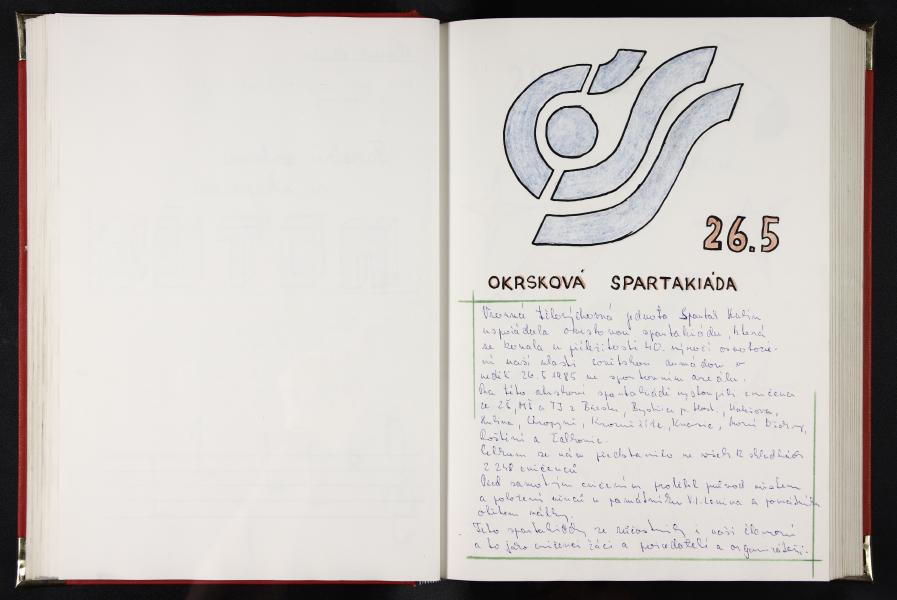 26.5
OKRSKOVÁ SPARTAKIÁDA
tělovýchovná jednota Spartak Hulín
uspořádala okrskovou spartakiádu, která
se konala u příležitosti 40. výročí osvoboze-
ní naší vlasti sovětskou armádou v
neděli 26.5 1985 ve sportovním areálu.
Na této okrskové spartakiádě vystoupili cvičenci
ze ZŠ, MŠ a TJ z Bystřice p. Host.,
Hulína, Chropyně, Kroměříže, Kvasic,
Roštění a
Celkem se nám představilo ve všech skladbách
2 240 cvičenců
Před samotným cvičením proběhl průvod městem
a položení věnců u památníku V.I. Lenina a
obětem války.
Této spartakiády se zúčastnily i naši členové
a to jako cvičenci žáci a pořadatelé a organizátoři.